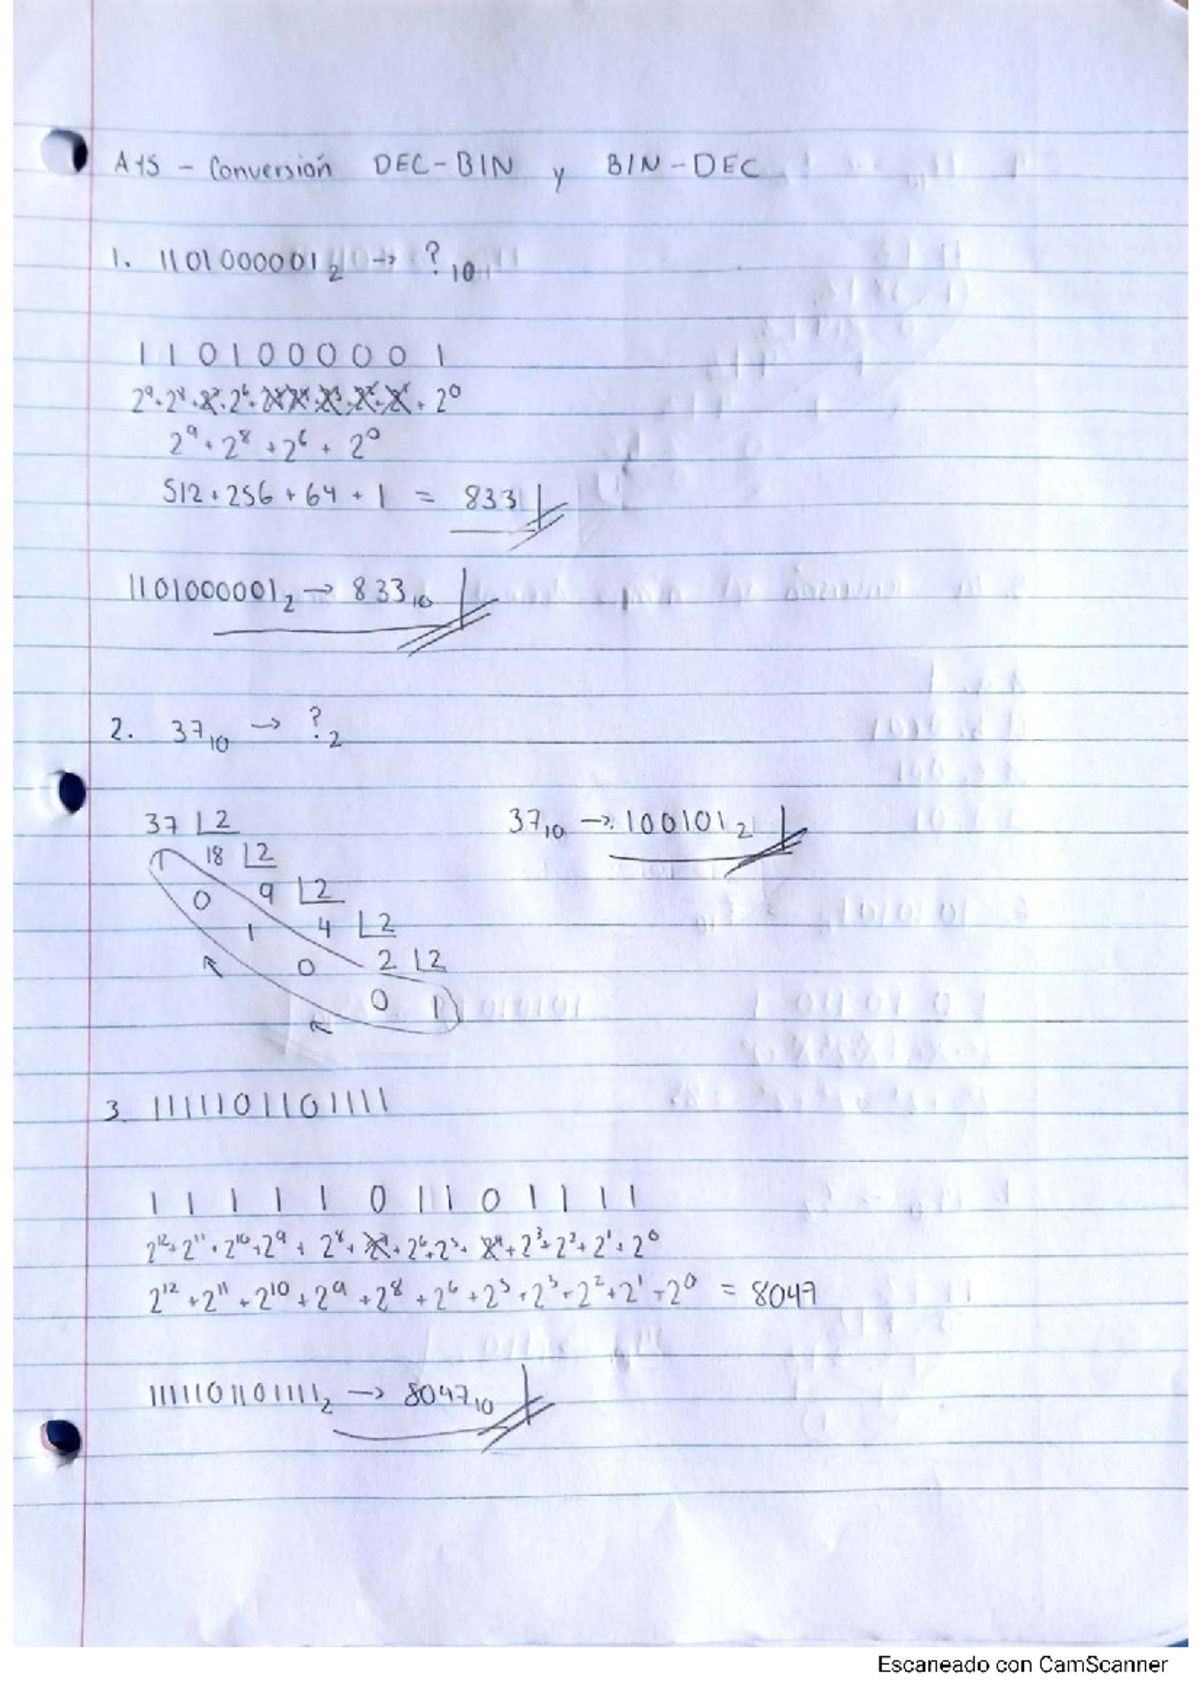 A15 - Conversión DEC-BIN y BIN-DEC
1. 1101000001₂ → ?₁₀
1 1 0 1 0 0 0 0 0 1
2⁹+2⁸+2⁷+2⁶+2⁵+2⁴+2³+2²+2¹+2⁰
2⁹+2⁸+2⁶+2⁰
512+256+64+1 = 833
1101000001₂ → 833₁₀
2. 37₁₀ → ?₂
37 2
37₁₀ → 100101₂
1 18 2
0 9 2
1 4 2
0 2 2
0 1
3. 1111101101111
1 1 1 1 1 0 1 1 0 1 1 1 1
2¹²+2¹¹+2¹⁰+2⁹+2⁸+2⁷+2⁶+2⁵+2⁴+2³+2²+2¹+2⁰
2¹²+2¹¹+2¹⁰+2⁹+2⁸+2⁶+2⁵+2³+2²+2¹+2⁰ = 8047
1111101101111₂ → 8047₁₀
Escaneado con CamScanner